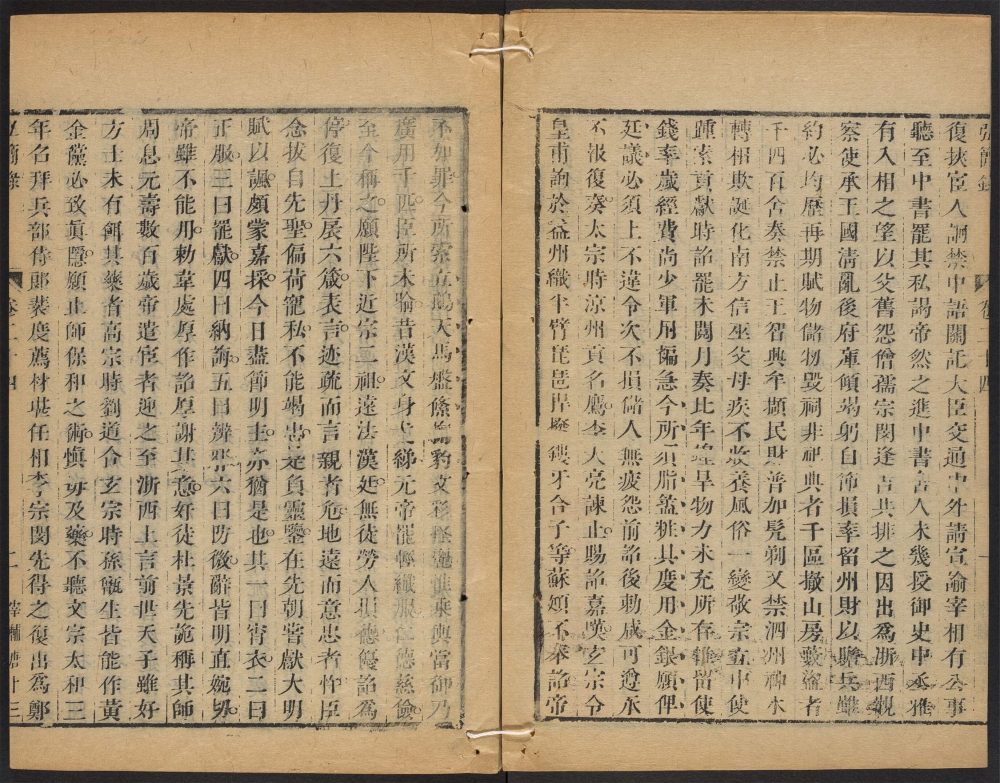 弘簡錄 卷二十四
復挾宦人詗禁中語關託大臣交通中外請宣諭宰相有公事
聽至中書罷其私謁帝然之進中書舍人未幾授御史中丞雅
有入相之望以父舊怨僧孺宗閔逢吉共排之因出為浙西觀
察使承王國清亂後府庫傾竭躬自節損率留州財以贍兵雖
約必均歷再期賦物儲物毀祠非祀典者千區撤山房藪盜者
千四百舍奏禁止王智興牟擷民財普加髡剃又禁泗州神水
轉相欺誕化南方信巫父母疾不收養風俗一變敬宗立中使
踵索貢獻時詔罷未閱月奏比年旱物力未充所存雖留使
錢率歲經費尚少軍用褊急今所須脂盝粧具度用金銀願俾
廷議必須上不違令次不損儲人無疲怨前詔後勅咸可遵承
不報復奏太宗時涼州貢名鷹李大亮諫止賜詔嘉嘆玄宗令
皇甫詢於益州織半臂琵琶捍撥鏤牙合子等蘇頲不奉詔帝
不加罪今所索立鵝天馬盤絛掬豹文彩怪麗惟乘輿當御乃
廣用千匹臣所未喻昔漢文身弋綈元帝罷輕纖服仁德慈儉
至今稱之願陛下近宗二祖遠法漢廷無徒勞人損德優詔為
停復上丹扆六箴表言迹疏而言親者危地遠而意忠者忤臣
念拔自先聖偏荷寵私不能竭忠是負靈鑒在先朝嘗獻大明
賦以諷頗蒙嘉採今日盡節明主亦猶是也其一曰宵衣二曰
正服三曰罷獻四曰納誨五曰辨邪六曰防微辭皆明直婉切
帝雖不能用勅韋處厚作詔厚謝其意好徒杜景先詭稱其師
周息元壽數百歲帝遣宦者迎之至浙西上言前世天子雖好
方士未有餌其藥者高宗時劉道合玄宗時孫甑生皆能作黃
金儻必致真隱願止師保和之術慎毋及藥不聽文宗太和三
年名拜兵部侍郎裴度薦材堪任相李宗閔先得之復出為鄭
弘簡錄 卷二十四 二 宰輔唐廿三